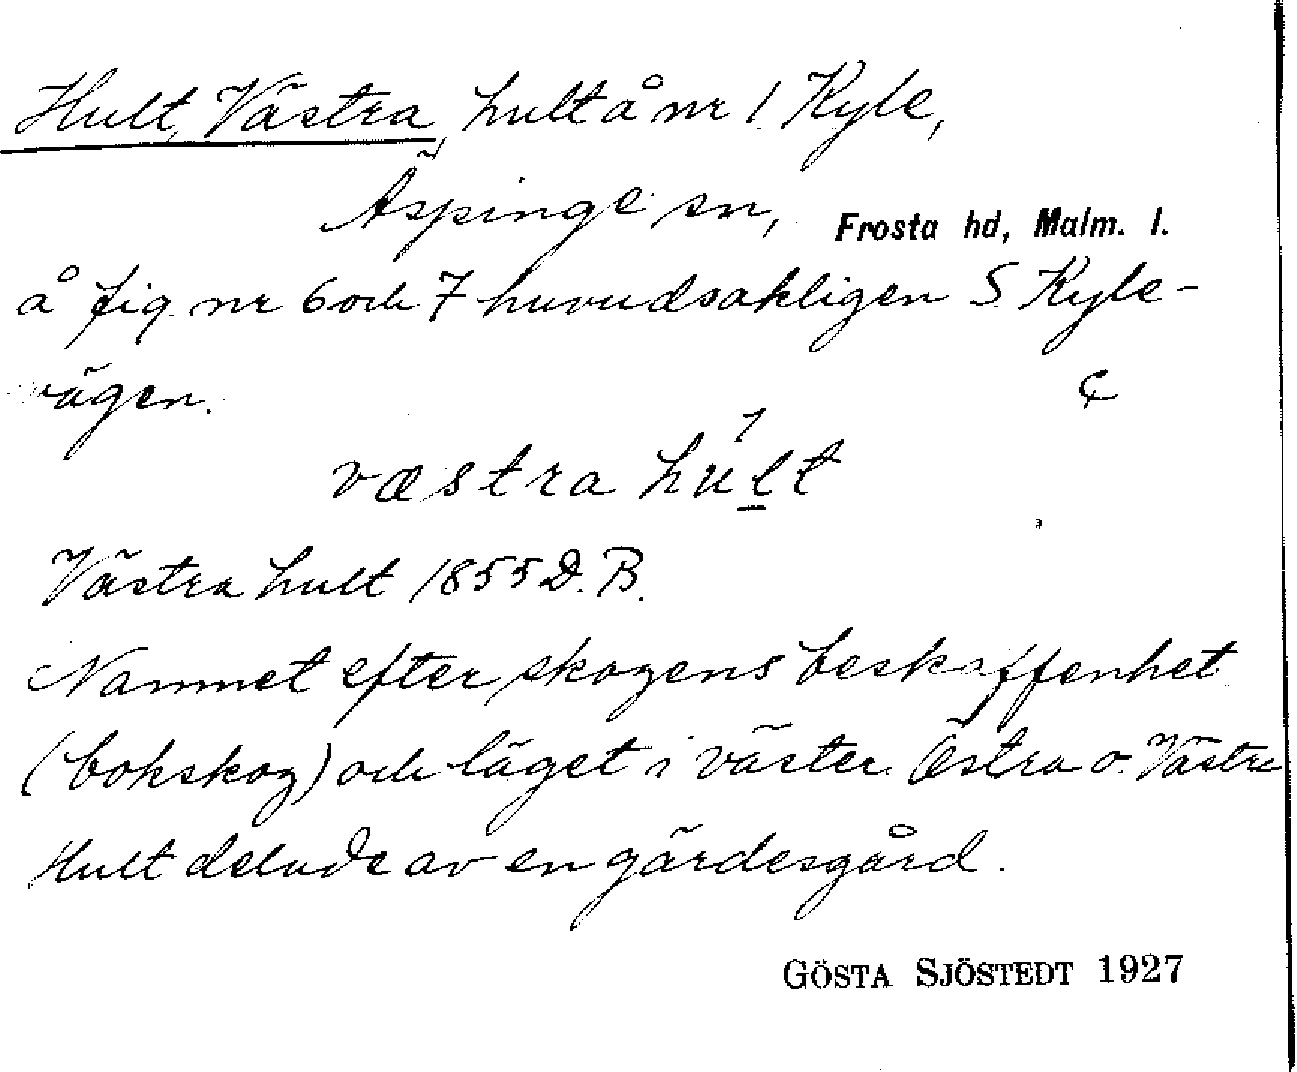 Hult, Västra, hult å nr 1 Kyle,
Äspinge sn, Frosta hd, Malm. l.
å fig. nr 6 och 7 huvudsakligen S Kyle-
vägen.
væstra hult
Västra hult 1855 D. B.
Namnet efter skogens beskaffenhet
(bokskog) och läget i väster. Östra o. Västra
Hult delade av en gärdesgård.
GÖSTA SJÖSTEDT 1927